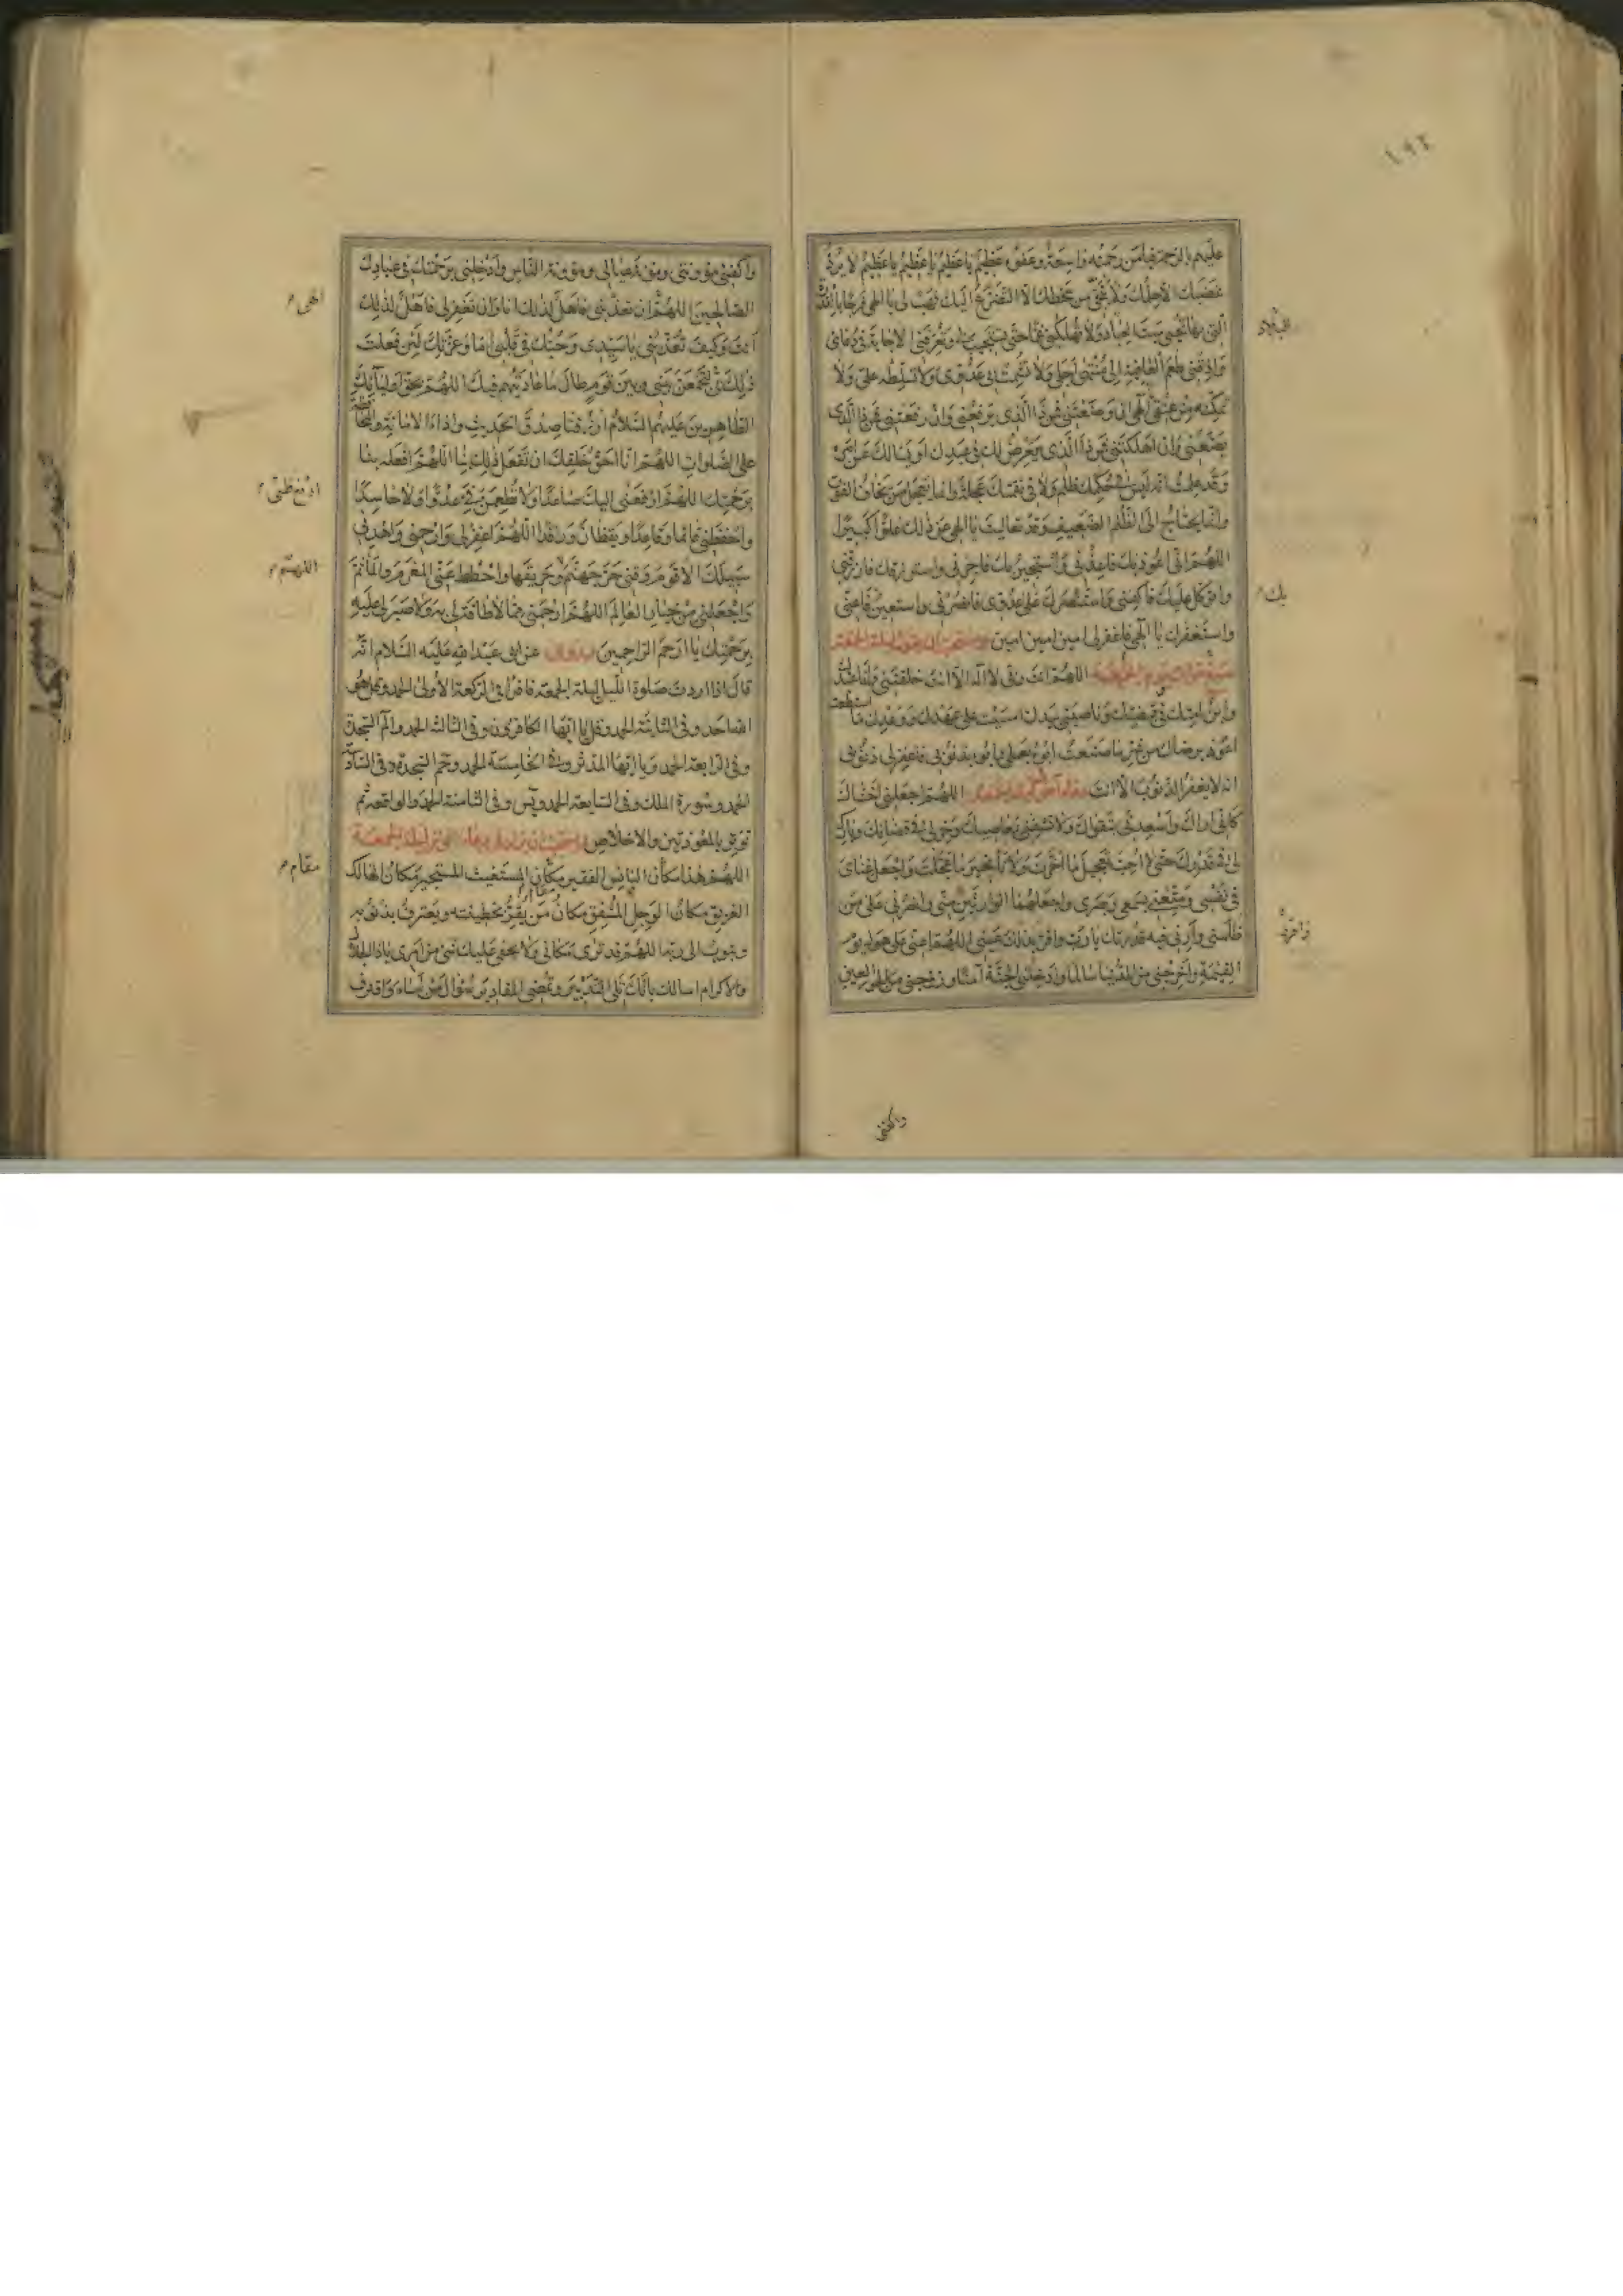 ١٩٢
عليهم بالرحمة فيا من رحمته واسعة وعفوه عظيم يا عظيم يا عظيم يا عظيم لا يرد
غضبك الا حلمك ولا ينجي من سخطك الا التضرع اليك فهب لي يا الهي فرجا بالقدرة
التي بها تحيي ميت البلاد ولا تهلكني غما حتى تستجيب لي وتعرفني الاجابة في دعائي
واذقني طعم العافية الى منتهى اجلي ولا تشمت بي عدوي ولا تسلطه علي ولا
تمكنه من عنقي الهي ان وضعتني فمن ذا الذي يرفعني وان رفعتني فمن ذا الذي
يضعني وان اهلكتني فمن ذا الذي يعرض لك في عبدك او يسالك عن امره
وقد علمت انه ليس في حكمك ظلم ولا في نقمتك عجلة وانما يعجل من يخاف الفوت
وانما يحتاج الى الظلم الضعيف وقد تعاليت يا الهي عن ذلك علوا كبيرا
اللهم اني اعوذ بك فاعذني واستجير بك فاجرني واسترزقك فارزقني
واتوكل عليك فاكفني واستنصرك على عدوي فانصرني واستعين بك فاعني
واستغفرك يا الهي فاغفر لي امين امين امين
اللهم انت ربي لا اله الا انت خلقتني وانا عبدك
وابن امتك في قبضتك وناصيتي بيدك امسيت على عهدك ووعدك ما استطعت
اعوذ برضاك من شر ما صنعت ابوء بعملي وابوء بذنوبي فاغفر لي ذنوبي
انه لا يغفر الذنوب الا انت اللهم اجعلني اخشاك
كاني اراك واسعدني بتقواك ولا تشقني بمعاصيك وخر لي في قضائك وبارك
لي في قدرك حتى لا احب تعجيل ما اخرت ولا تاخير ما عجلت واجعل غناي
في نفسي ومتعني بسمعي وبصري واجعلهما الوارثين مني وانصرني على من
ظلمني وارني فيه قدرتك يا رب واقر بذلك عيني اللهم اعني على هول يوم
القيمة واخرجني من الدنيا سالما وادخلني الجنة آمنا وزوجني من الحور العين
البلاد
بك
واكفني
واكفني مؤونتي ومؤونة عيالي ومؤونة الناس وادخلني برحمتك في عبادك
الصالحين اللهم ان تعذبني فاهل لذلك انا وان تغفر لي فاهل لذلك
انت وكيف تعذبني يا سيدي وحبك في قلبي اما وعزتك لئن فعلت
ذلك بي لتجمعن بيني وبين قوم طال ما عاديتهم فيك اللهم بحق اوليائك
الطاهرين عليهم السلام ارزقنا صدق الحديث واداء الامانة والمحافظة
على الصلوات اللهم انا احق خلقك ان تفعل ذلك بنا اللهم افعله بنا
برحمتك اللهم ارفعني اليك صاعدا ولا تطمعن في عدوا ولا حاسدا
واحفظني قائما وقاعدا ويقظان وراقدا اللهم اغفر لي وارحمني واهدني
سبيلك الاقوم وقني حر جهنم وحريقها واحطط عني المغرم والمأثم
واجعلني من خيار العالم اللهم ارحمني مما لا طاقة لي به ولا صبر لي عليه
برحمتك يا ارحم الراحمين عن ابي عبد الله عليه السلام انه
قال اذا اردت صلوة الليل ليلة الجمعة فاقرا في الركعة الاولى الحمد وقل هو
الله احد وفي الثانية الحمد وقل يا ايها الكافرون وفي الثالثة الحمد والم السجدة
وفي الرابعة الحمد ويا ايها المدثر وفي الخامسة الحمد وحم السجدة وفي السادسة
الحمد وسورة الملك وفي السابعة الحمد ويس وفي الثامنة الحمد والواقعة ثم
توتر بالمعوذتين والاخلاص
اللهم هذا مكان البائس الفقير مكان المستغيث المستجير مكان الهالك
الغريق مكان الوجل المشفق مكان من يقر بخطيئته ويعترف بذنوبه
ويتوب الى ربه اللهم قد ترى مكاني ولا يخفى عليك شيء من امري يا ذا الجلال
والاكرام اسالك بانك تلي التدبير وتمضي المقادير سؤال من اساء واقترف
الهي
اللهم
مقام